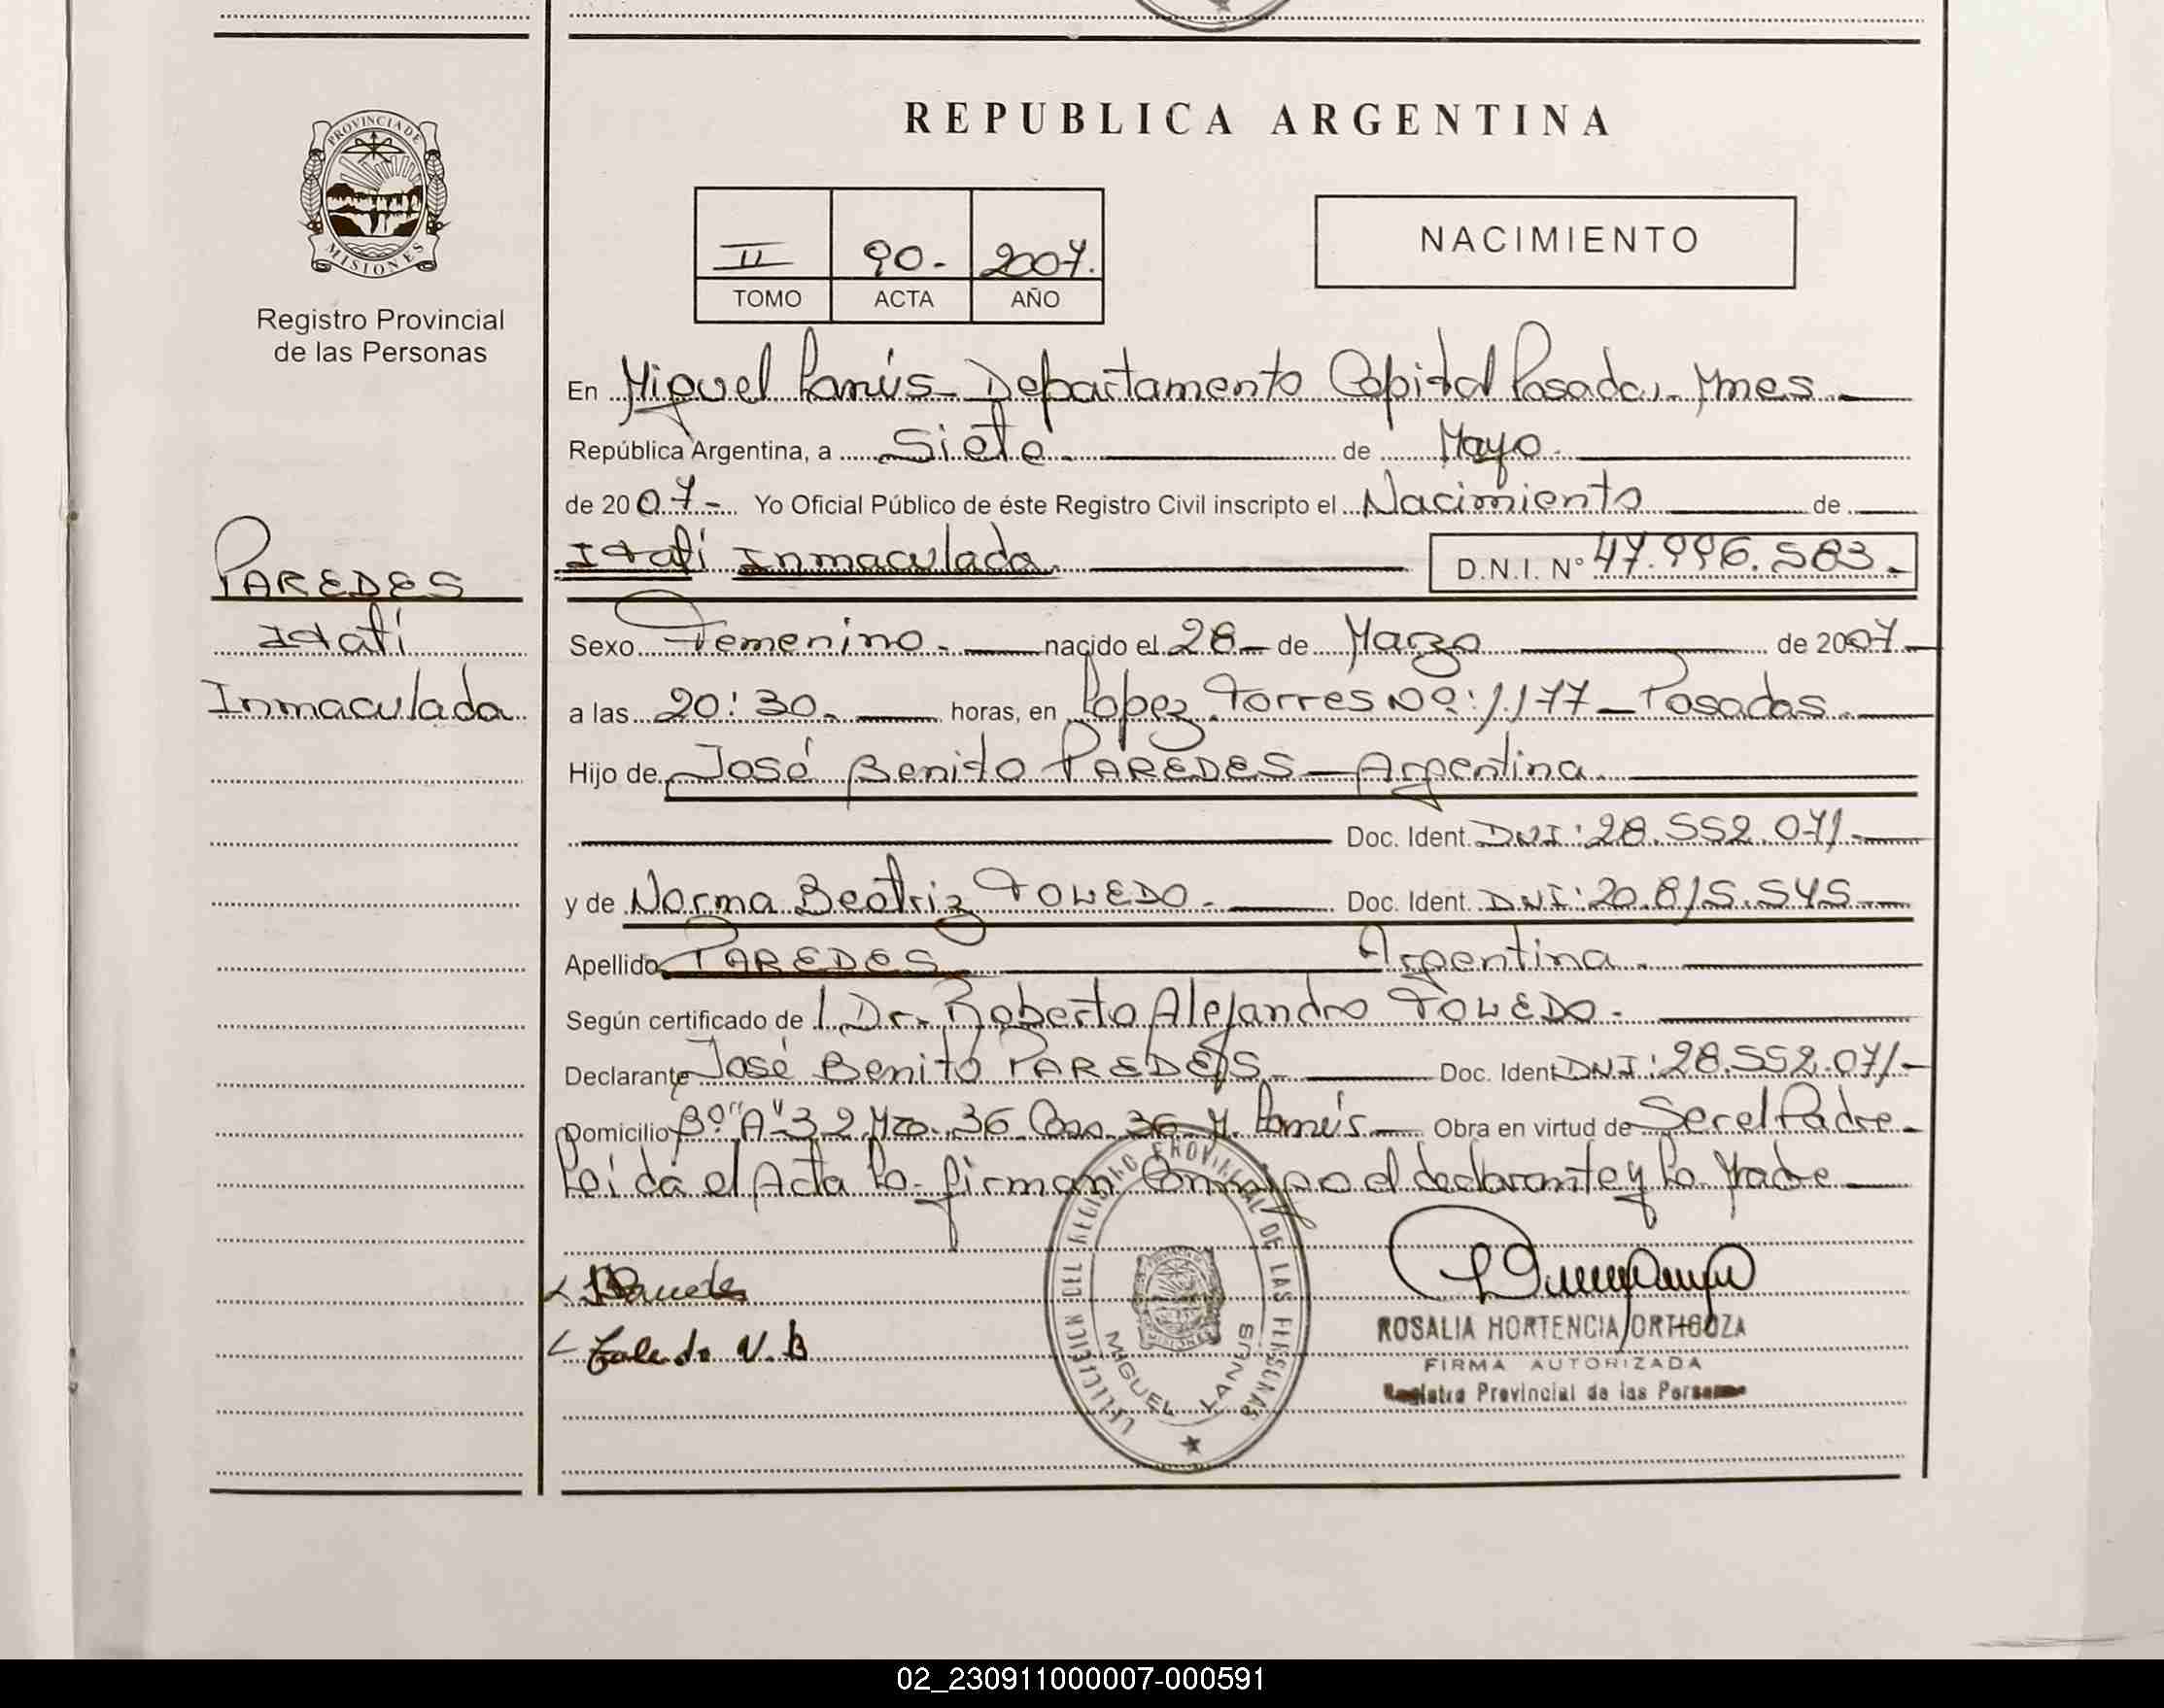 REPUBLICA ARGENTINA
PROVINCIA DE
MISIONES
Registro Provincial
de las Personas
II 90- 2007.
TOMO ACTA AÑO
NACIMIENTO
En Miguel Lanús- Departamento Capital Posadas- Mnes.
República Argentina, a Siete. de Mayo.
de 2007- Yo Oficial Público de éste Registro Civil inscripto el Nacimiento de
Itatí Inmaculada. D.N.I. Nº 47.996.583.
PAREDES
Itatí
Inmaculada
Sexo Femenino. nacido el 28- de Marzo de 2007-
a las 20:30. horas, en Lopez Torres Nº: 1177 - Posadas.
Hijo de José Benito PAREDES - Argentina.
Doc. Ident. DNI: 28.552.071-
y de Norma Beatriz TOLEDO. Doc. Ident. DNI: 20.815.545
Apellido PAREDES Argentina.
Según certificado de Dr. Roberto Alejandro TOLEDO.
Declarante José Benito PAREDES. Doc. Ident DNI: 28.552.071-
Domicilio Bº "A" 3 2 Mza. 36 Casa 36 M. Lanús- Obra en virtud de Ser el Padre-
Leída el Acta la firman Conmigo el declarante y la Madre
Toledo N. B
DEL REGISTRO PROVINCIAL DE LAS PERSONAS
MIGUEL LANUS
ROSALIA HORTENCIA ORTIGOZA
FIRMA AUTORIZADA
Registro Provincial de las Personas
02_230911000007-000591